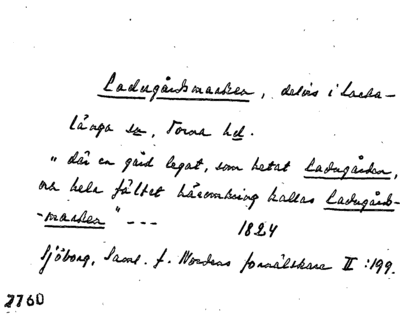 Ladugårdsmarken, delvis i Lacka-
långa sn, Torna hd.
"där en gård legat, som hetat Ladugården,
och hela fältet häromkring kallas Ladugårds-
-marken" --- 1824
Sjöborg, Saml. f. Nordens fornälskare II:199.
2760